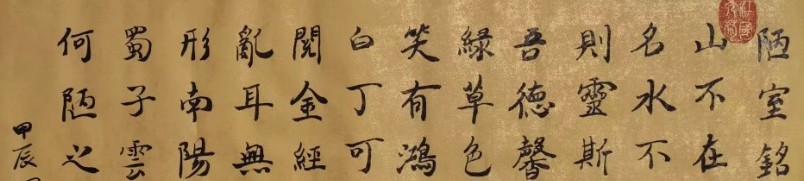 陋室銘
山不在
名水不
則靈斯
吾德馨
綠草色
笑有鴻
白丁可
閱金經
亂耳無
形南陽
蜀子雲
何陋之
甲辰